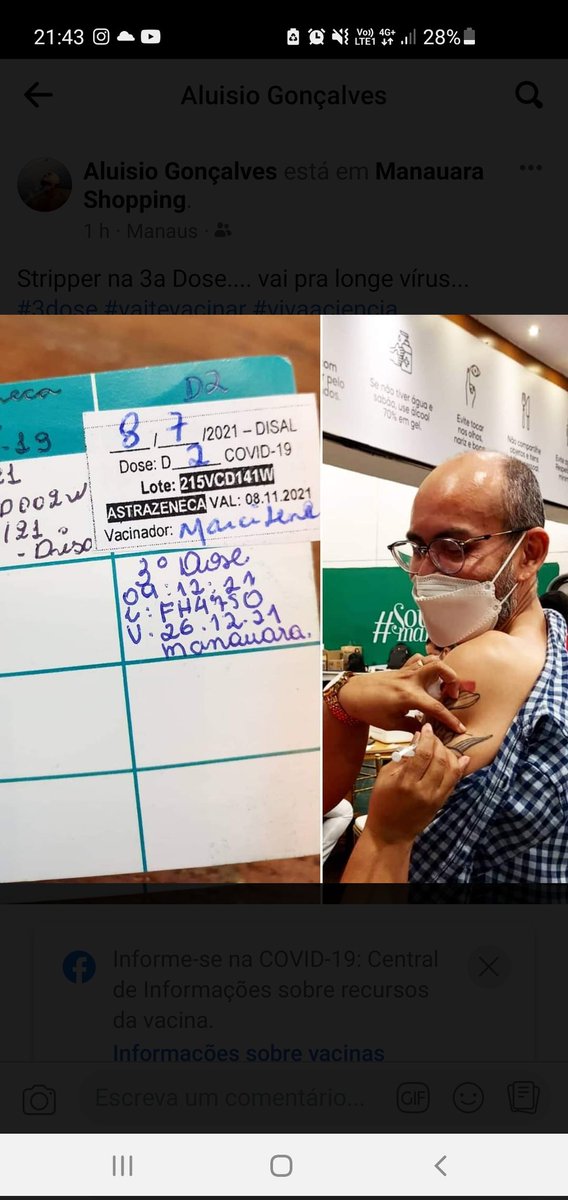 21:43
Vo)) 4G+
LTE1
28%
Aluisio Gonçalves
Aluisio Gonçalves está em Manauara
Shopping.
1 h · Manaus ·
Stripper na 3a Dose.... vai pra longe vírus...
#3dose #vaitevacinar #vivaaciencia
D2
8/7/2021 – DISAL
Dose: D 2 COVID-19
Lote: 215VCD141W
ASTRAZENECA VAL: 08.11.2021
Vacinador:
3º Dose
09.12.21
L: FH4750
V: 26.12.21
manauara.
.19
21
D002W
/21
Se não tiver água e
sabão, use álcool
70% em gel.
Evite tocar
nos olhos,
nariz e
Não compartilhe
#Sou
man
Informe-se na COVID-19: Central
de Informações sobre recursos
da vacina.
Informações sobre vacinas
Escreva um comentário...
GIF